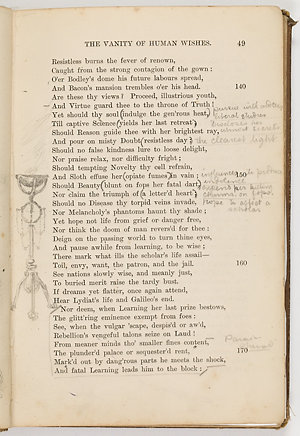 THE VANITY OF HUMAN WISHES. 49
Resistless burns the fever of renown,
Caught from the strong contagion of the gown :
O'er Bodley's dome his future labours spread,
And Bacon's mansion trembles o'er his head. 140
Are these thy views? Proceed, illustrious youth,
And Virtue guard thee to the throne of Truth!
Yet should thy soul indulge the gen'rous heat,
Till captive Science yields her last retreat;
Should Reason guide thee with her brightest ray,
And pour on misty Doubt resistless day;
Should no false kindness lure to loose delight,
Nor praise relax, nor difficulty fright;
Should tempting Novelty thy cell refrain,
And Sloth effuse her opiate fumes in vain; 150
Should Beauty blunt on fops her fatal dart,
Nor claim the triumph of a letter'd heart;
Should no Disease thy torpid veins invade,
Nor Melancholy's phantoms haunt thy shade;
Yet hope not life from grief or danger free,
Nor think the doom of man revers'd for thee:
Deign on the passing world to turn thine eyes,
And pause awhile from learning, to be wise;
There mark what ills the scholar's life assail—
Toil, envy, want, the patron, and the jail. 160
See nations slowly wise, and meanly just,
To buried merit raise the tardy bust.
If dreams yet flatter, once again attend,
Hear Lydiat's life and Galileo's end.
Nor deem, when Learning her last prize bestows,
The glitt'ring eminence exempt from foes:
See, when the vulgar 'scape, despis'd or aw'd,
Rebellion's vengeful talons seize on Laud!
From meaner minds tho' smaller fines content,
The plunder'd palace or sequester'd rent, 170
Mark'd out by dang'rous parts he meets the shock,
And fatal Learning leads him to the block:
pursue with
liberal studies
the clearest light
scholar